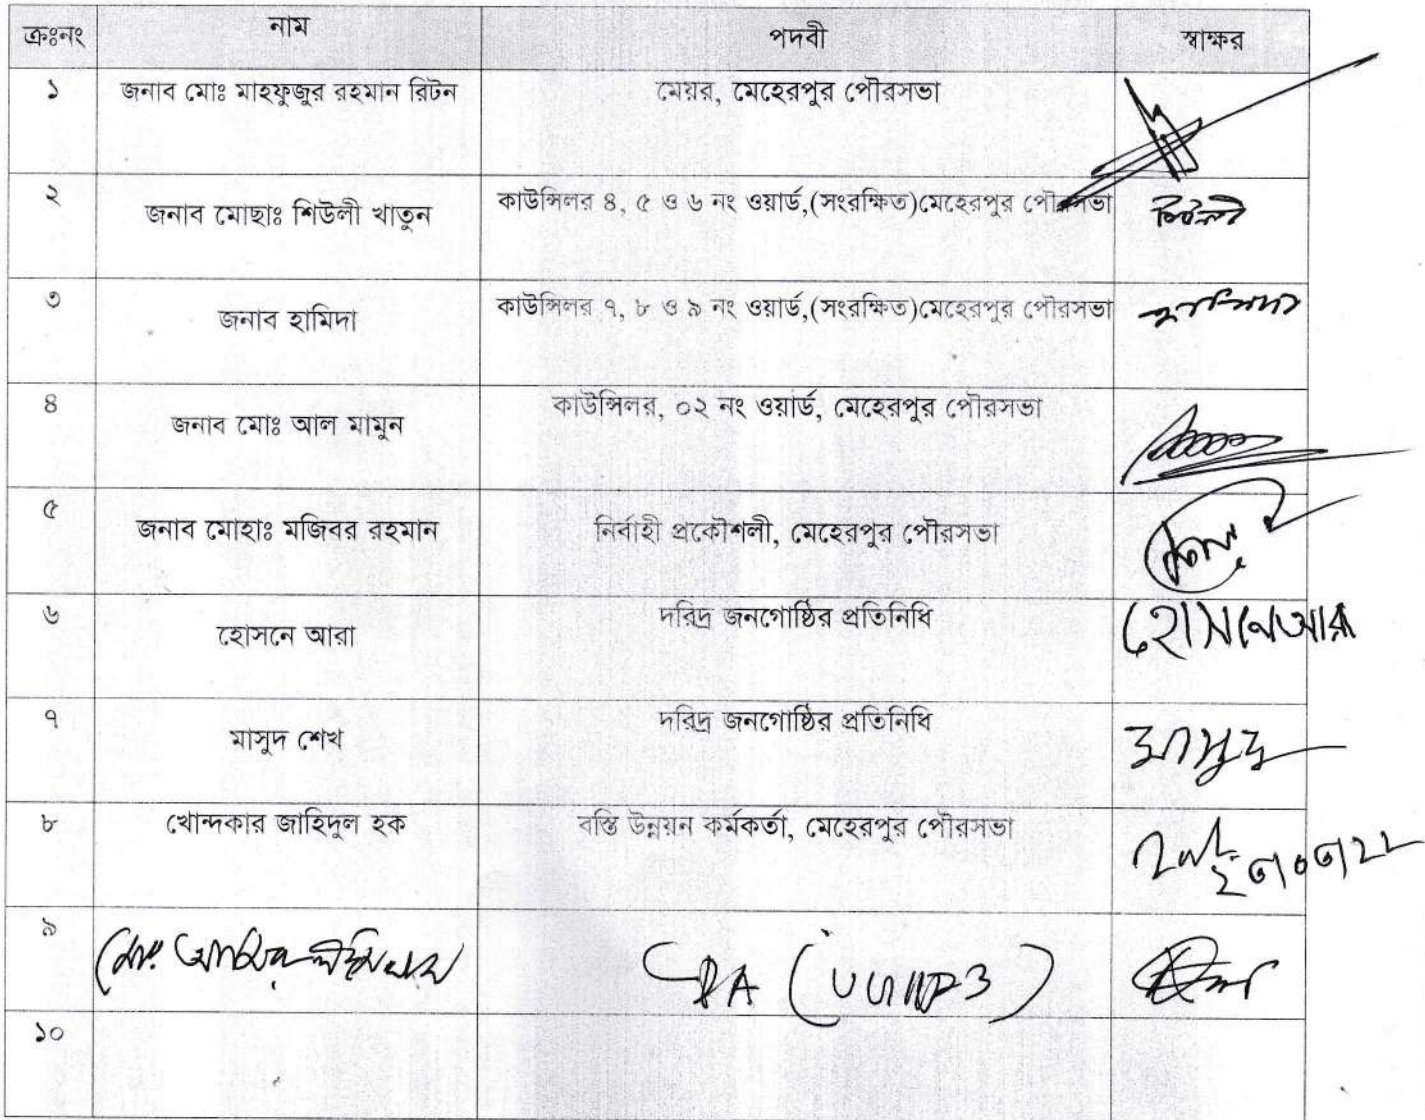 ক্রঃনং নাম পদবী স্বাক্ষর
১ জনাব মোঃ মাহফুজুর রহমান রিটন মেয়র, মেহেরপুর পৌরসভা
২ জনাব মোছাঃ শিউলী খাতুন কাউন্সিলর ৪, ৫ ও ৬ নং ওয়ার্ড,(সংরক্ষিত)মেহেরপুর পৌরসভা শিউলী
৩ জনাব হামিদা কাউন্সিলর ৭, ৮ ও ৯ নং ওয়ার্ড,(সংরক্ষিত)মেহেরপুর পৌরসভা হামিদা
৪ জনাব মোঃ আল মামুন কাউন্সিলর, ০২ নং ওয়ার্ড, মেহেরপুর পৌরসভা
৫ জনাব মোহাঃ মজিবর রহমান নির্বাহী প্রকৌশলী, মেহেরপুর পৌরসভা
৬ হোসনে আরা দরিদ্র জনগোষ্ঠির প্রতিনিধি হোসনেআরা
৭ মাসুদ শেখ দরিদ্র জনগোষ্ঠির প্রতিনিধি মাসুদ
৮ খোন্দকার জাহিদুল হক বস্তি উন্নয়ন কর্মকর্তা, মেহেরপুর পৌরসভা
৯ মোঃ
১০